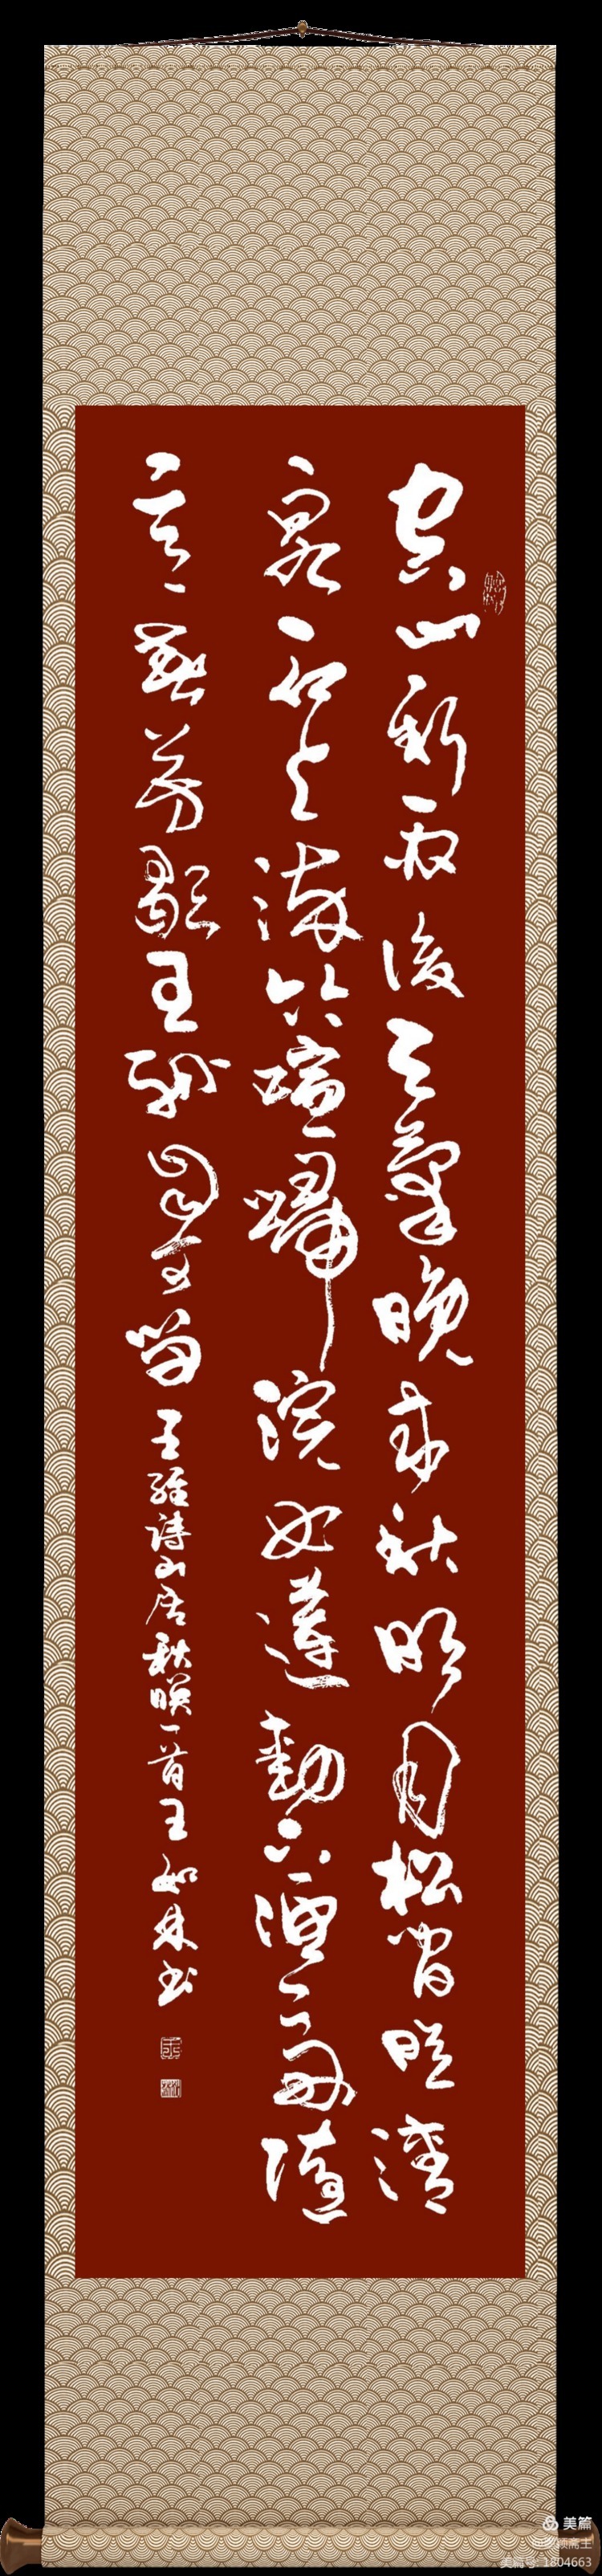 空山新雨後天氣晚来秋明月松間照清
泉石上流竹喧歸浣女蓮動下漁舟随
意春芳歇王孫自可留
王維詩山居秋暝一首王如来书
美篇
美篇号:1804663